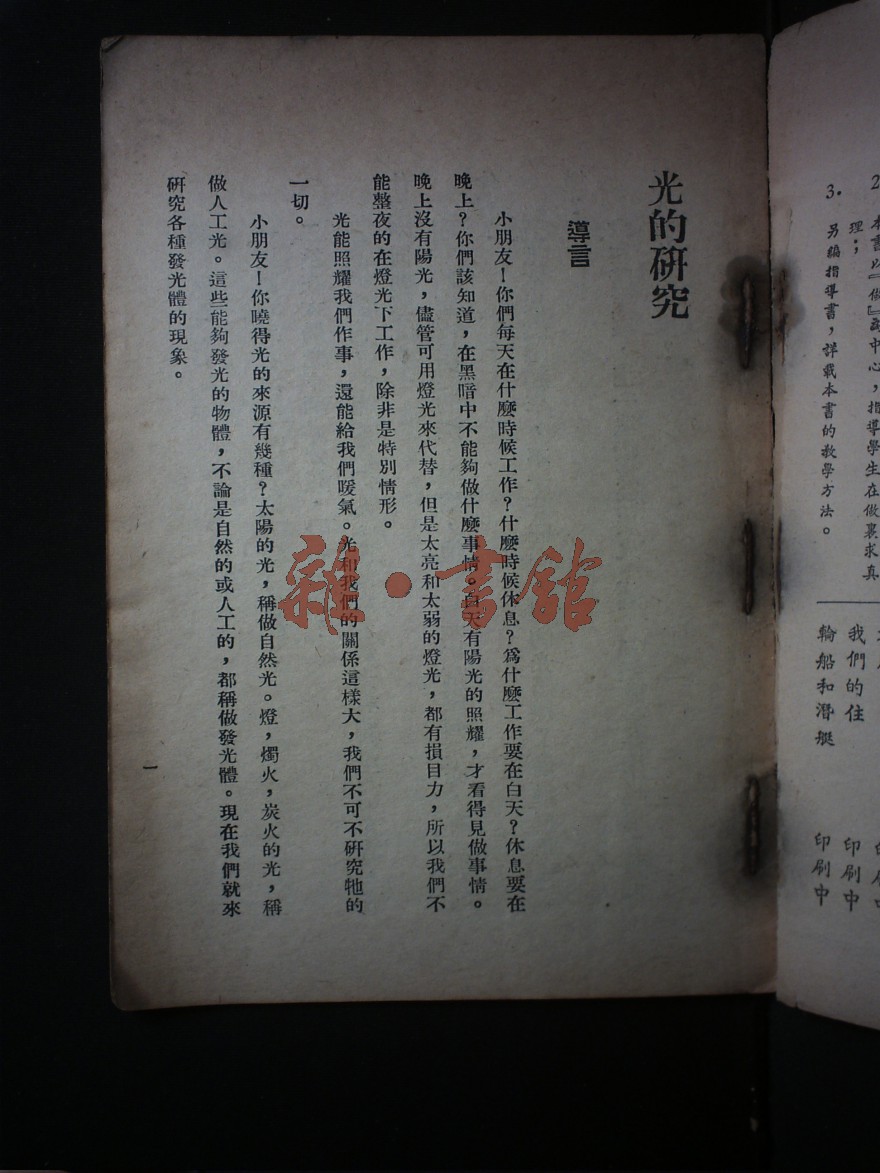 光的研究
導言
小朋友！你們每天在什麼時候工作？什麼時候休息？爲什麼工作要在白天？休息要在
晚上？你們該知道，在黑暗中不能夠做什麼事情。白天有陽光的照耀，才看得見做事情。
晚上沒有陽光，儘管可用燈光來代替，但是太亮和太弱的燈光，都有損目力，所以我們不
能整夜的在燈光下工作，除非是特別情形。
光能照耀我們作事，還能給我們暖氣。光和我們的關係這樣大，我們不可不研究牠的
一切。
小朋友！你曉得光的來源有幾種？太陽的光，稱做自然光。燈，燭火，炭火的光，稱
做人工光。這些能夠發光的物體，不論是自然的或人工的，都稱做發光體。現在我們就來
研究各種發光體的現象。
一
雜·書館
2
本書以『做』爲中心，指導學生在做裏求真
理；
3. 另編指導書，詳載本書的教學方法。
我們的住
印刷中
輪船和潛艇
印刷中